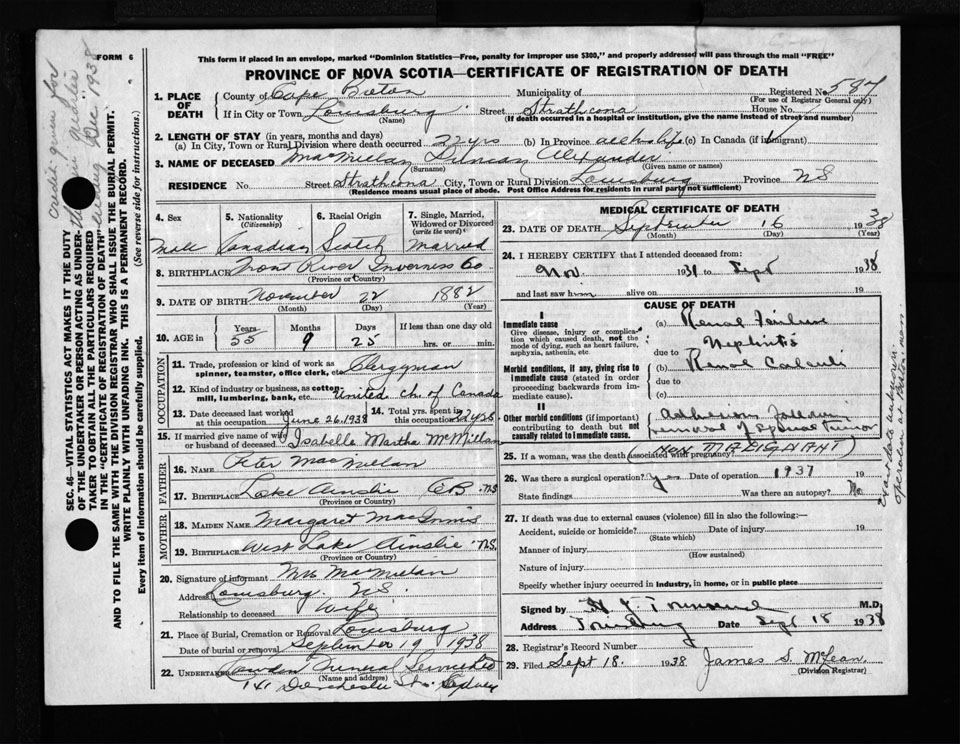 FORM 6
This form if placed in an envelope, marked "Dominion Statistics—Free, penalty for improper use $300," and properly addressed will pass through the mail "FREE"
PROVINCE OF NOVA SCOTIA—CERTIFICATE OF REGISTRATION OF DEATH
1. PLACE OF DEATH
County of Cape Breton Municipality of Registered No. 587
(For use of Registrar General only)
If in City or Town Louisburg Street Strathcona House No.
(Name) (If death occurred in a hospital or institution, give the name instead of street and number)
2. LENGTH OF STAY (in years, months and days)
(a) In City, Town or Rural Division where death occurred 22 yrs (b) In Province all his life (c) In Canada (if immigrant)
3. NAME OF DECEASED MacMillan Duncan Alexander
(Surname) (Given name or names)
RESIDENCE No. Street Strathcona City, Town or Rural Division Louisburg Province N S
(Residence means usual place of abode. Post Office Address for residents in rural parts not sufficient)
4. Sex 5. Nationality (Citizenship) 6. Racial Origin 7. Single, Married, Widowed or Divorced (write the word)
Male Canadian Scotch Married
8. BIRTHPLACE Front River Inverness Co
(Province or Country)
9. DATE OF BIRTH November 22 1882
(Month) (Day) (Year)
10. AGE in Years Months Days If less than one day old
55 9 25 hrs. or min.
OCCUPATION
11. Trade, profession or kind of work as spinner, teamster, office clerk, etc. Clergyman
12. Kind of industry or business, as cotton-mill, lumbering, bank, etc. United Ch. of Canada
13. Date deceased last worked at this occupation June 26, 1938 14. Total yrs. spent in this occupation yrs.
15. If married give name of wife or husband of deceased Isabelle Martha McMillan
FATHER
16. NAME Peter MacMillan
17. BIRTHPLACE Lake Ainslie C B NS
(Province or Country)
MOTHER
18. MAIDEN NAME Margaret MacInnis
19. BIRTHPLACE West Lake Ainslie N.S.
(Province or Country)
20. Signature of informant Mrs MacMillan
Address Louisburg N.S.
Relationship to deceased Wife
21. Place of Burial, Cremation or Removal Louisburg
Date of burial or removal September 19 1938
22. UNDERTAKER Funeral Service Ltd
(Name and address)
141 Dorchester St. Sydney
MEDICAL CERTIFICATE OF DEATH
23. DATE OF DEATH September 16 1938
(Month) (Day) (Year)
24. I HEREBY CERTIFY that I attended deceased from:
Nov. 1931 to Sept 1938
and last saw him alive on 19
CAUSE OF DEATH
I
Immediate cause (a) Renal Failure
Give disease, injury or complication which caused death, not the mode of dying, such as heart failure, asphyxia, asthenia, etc
Nephritis
due to
Morbid conditions, if any, giving rise to immediate cause (stated in order proceeding backwards from immediate cause).
(b) Renal Calculi
due to
(c)
II
Other morbid conditions (if important) contributing to death but not causally related to immediate cause.
Adhesions following removal of Tumor
(NON MALIGNANT)
25. If a woman, was the death associated with pregnancy?
26. Was there a surgical operation? Yes Date of operation 1937 19
State findings Was there an autopsy? No
27. If death was due to external causes (violence) fill in also the following:—
Accident, suicide or homicide? Date of injury 19
(State which)
Manner of injury
(How sustained)
Nature of injury
Specify whether injury occurred in industry, in home, or in public place
Signed by M.D.
Address Louisburg Date Sept 18 1938
28. Registrar's Record Number
29. Filed Sept 18. 1938 James S. McLean.
(Division Registrar)
SEC. 46—VITAL STATISTICS ACT MAKES IT THE DUTY
OF THE UNDERTAKER OR PERSON ACTING AS UNDERTAKER TO OBTAIN ALL THE PARTICULARS REQUIRED
IN THE "CERTIFICATE OF REGISTRATION OF DEATH"
AND TO FILE THE SAME WITH THE DIVISION REGISTRAR WHO SHALL ISSUE THE BURIAL PERMIT.
WRITE PLAINLY WITH UNFADING INK. THIS IS A PERMANENT RECORD.
Every item of information should be carefully supplied. (See reverse side for instructions.)
credit given for
Dec. 1938